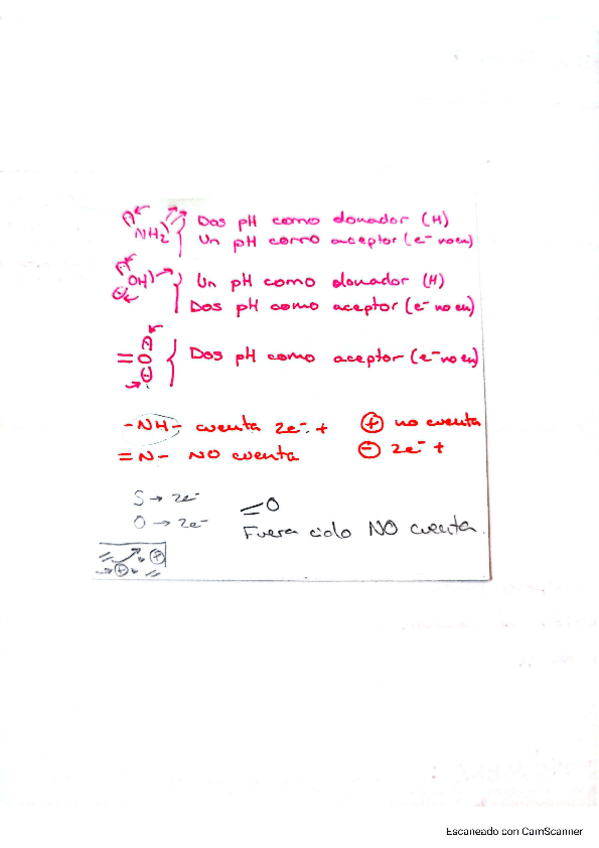 NH2 Dos pH como donador (H)
Un pH como aceptor (e- no en)
OH Un pH como donador (H)
Dos pH como aceptor (e- no en)
=O Dos pH como aceptor (e- no en)
-NH- cuenta 2e- +
⊕ no cuenta
=N- NO cuenta
⊖ 2e- +
S → 2e-
O → 2e-
=O
Fuera ciclo NO cuenta.
Escaneado con CamScanner